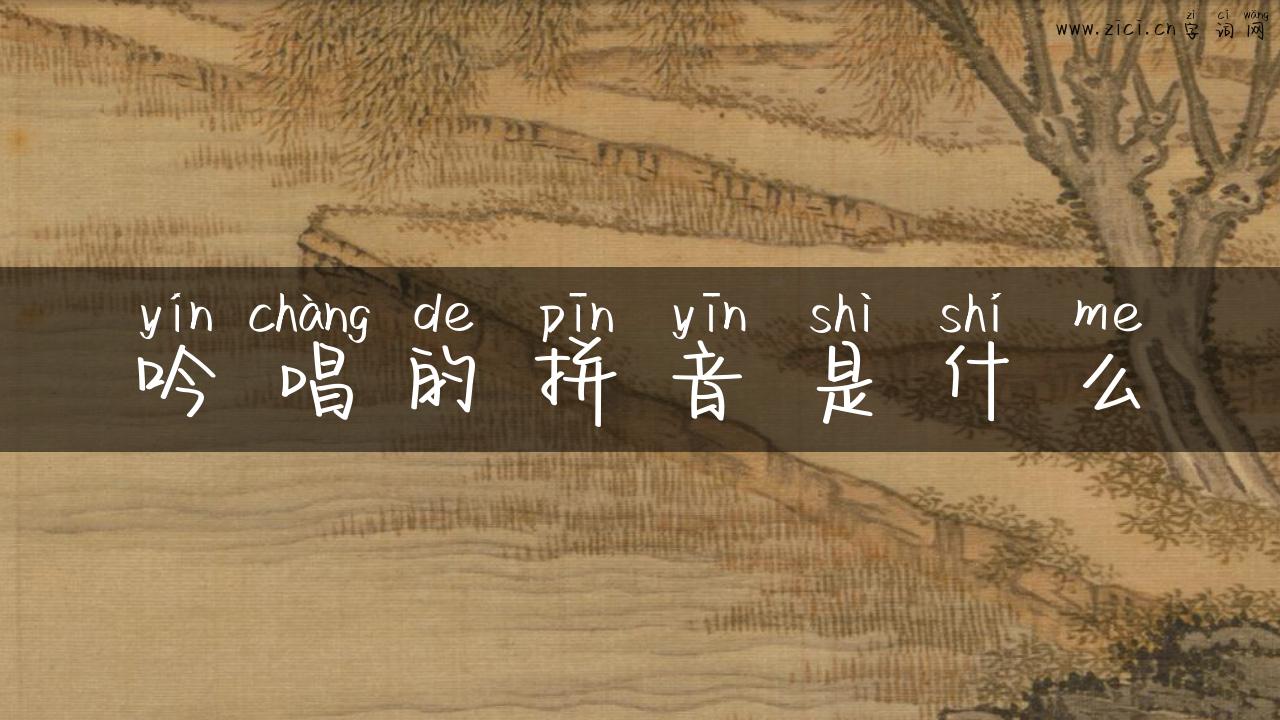 zì cí wǎng
www.zici.cn字词网
yín chàng de pīn yīn shì shí me
吟唱的拼音是什么